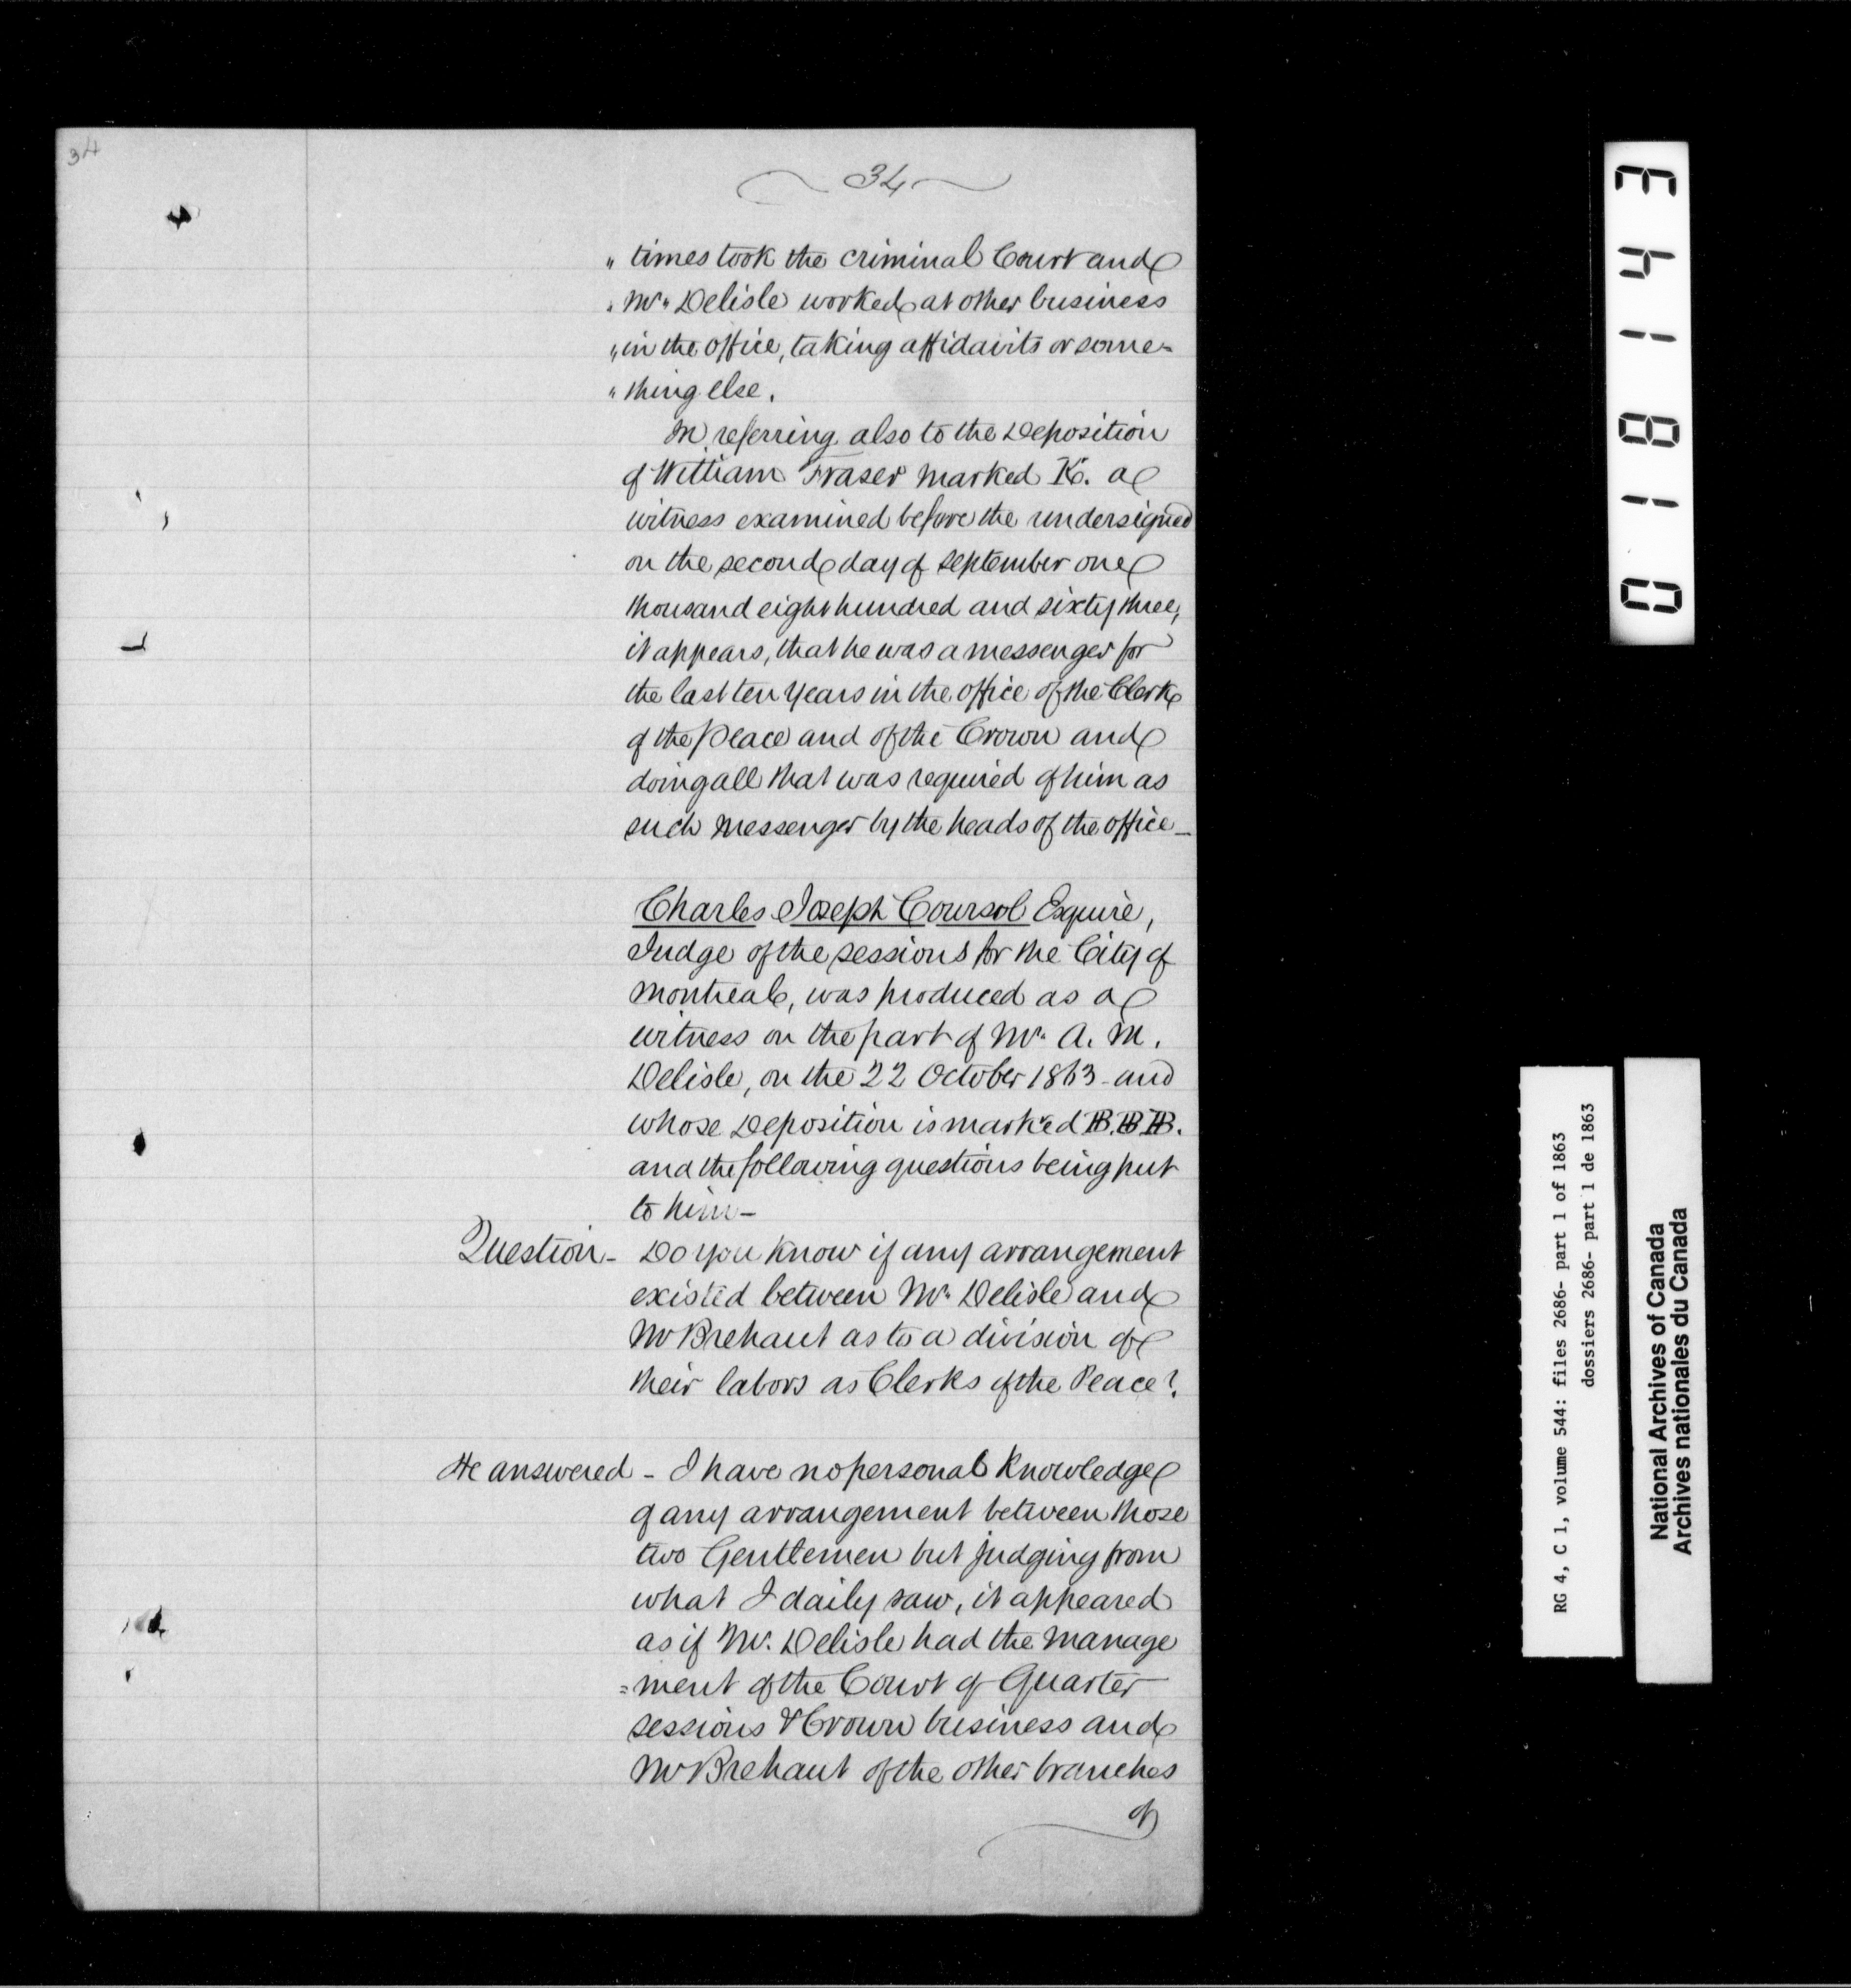 34
34
" times took the criminal Court and
" Mr. Delisle worked at other business
" in the office, taking affidavits or some-
" thing else.
In referring also to the Deposition
of William Fraser marked K. a
witness examined before the undersigned
on the second day of September one
thousand eight hundred and sixty three,
it appears, that he was a messenger for
the last ten years in the office of the Clerk
of the Peace and of the Crown and
doing all that was required of him as
such messenger by the heads of the office_
Charles Joseph Coursol Esquire,
Judge of the sessions for the City of
Montreal, was produced as a
witness on the part of Mr. A. M.
Delisle, on the 22 October 1863 - and
whose Deposition is marked B.B.B.
and the following questions being put
to him -
Question - Do you know if any arrangement
existed between Mr. Delisle and
Mr Brehaut as to a division of
their labors as Clerks of the Peace?
He answered - I have no personal knowledge
of any arrangement between those
two Gentlemen but judging from
what I daily saw, it appeared
as if Mr. Delisle had the manage
=ment of the Court of Quarter
sessions & Crown business and
Mr Brehaut of the other branches
of
018143
RG 4, C 1, volume 544: files 2686- part 1 of 1863
dossiers 2686- part 1 de 1863
National Archives of Canada
Archives nationales du Canada